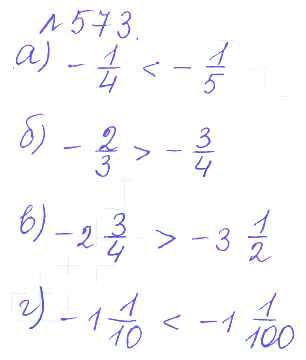 № 573.
а) - 1/4 < - 1/5
б) - 2/3 > - 3/4
в) - 2 3/4 > - 3 1/2
г) - 1 1/10 < - 1 1/100